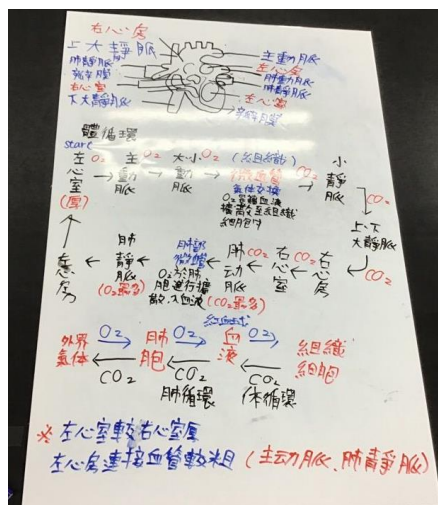 右心房
上大靜脈
肺靜脈
右心室
下大靜脈
主動脈
左心房
肺動脈
肺靜脈
左心室
體循環
start
左心室(厚) O₂ → 主動脈 O₂ → 大小動脈 O₂ → (組織) 微血管 CO₂ → 小靜脈
氣體交換
O₂
擴散至組織
細胞內
CO₂
上、下大靜脈
CO₂
左心房 ← 肺靜脈 (O₂最多) ← 肺部微血管 ← 肺动脈 CO₂ (CO₂最多) ← 右心室 CO₂ ← 右心房
O₂於肺
胞進行擴
散,入血液
紅血球
外界氣體 O₂ 肺胞 O₂ 血液 O₂ 組織細胞
CO₂ CO₂ CO₂
肺循環 体循環
※ 左心室較右心室厚
左心房連接血管較粗 (主动脈、肺靜脈)